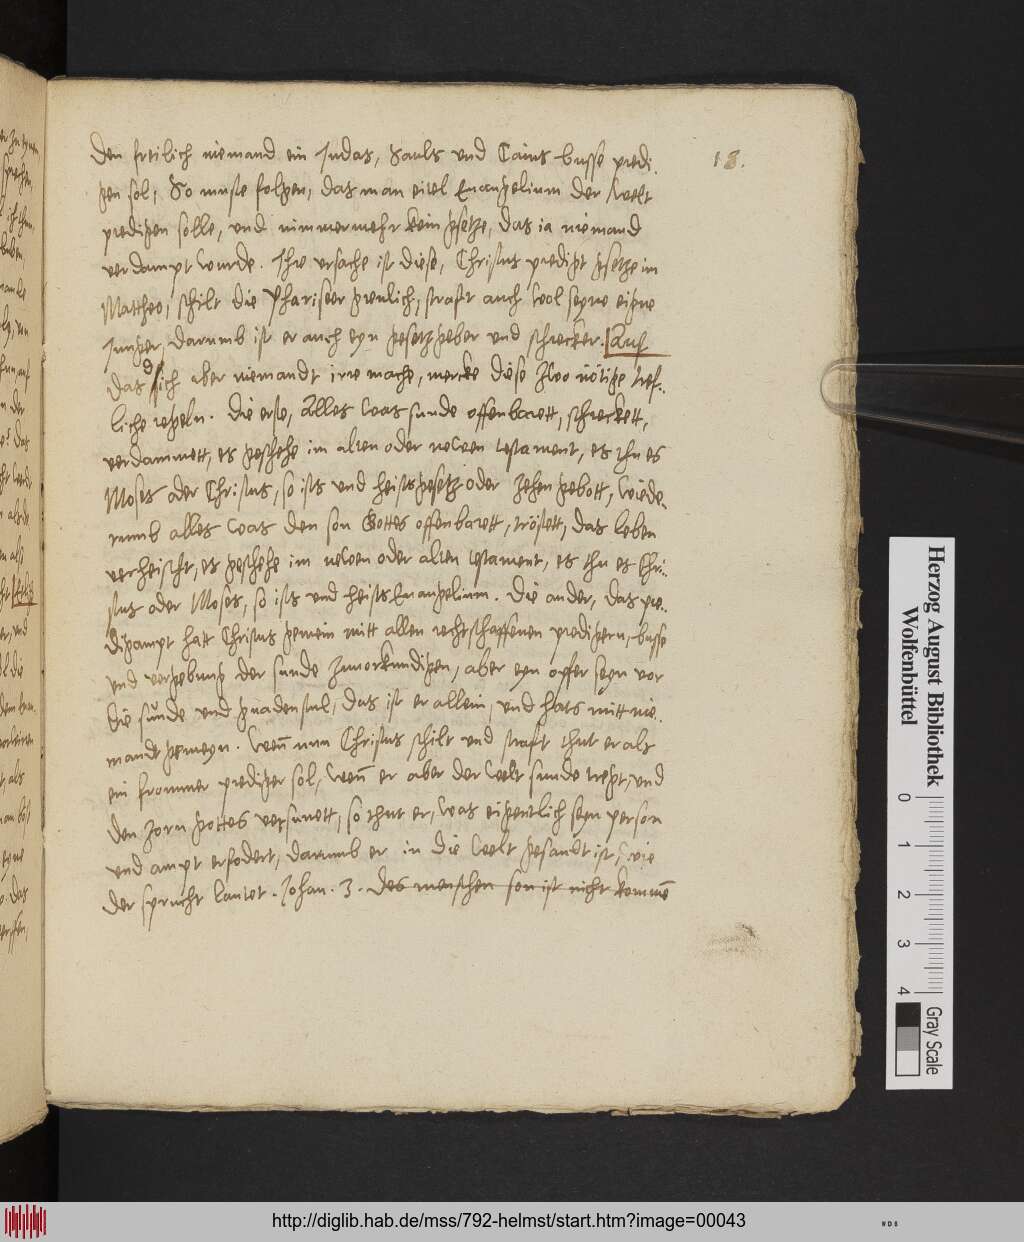 18.
den freilich niemand ein Judas, Sauls und Cains busse predi-
gen sol, So muste folgen, das man eitel Euangelium der welt
predigen solle, und nimmermehr kein gesetze, das ia niemand
verdampt wurde. Ihre ursache ist diese, Christus predigt gsetze im
Mattheo, schilt die Phariseer grewlich, strafft auch wol seyne eigne
Junger, darumb ist er auch eyn gesetzgeber und schrecker. Auf
das sich aber niemandt irre mache, mercke diese zwo nötige tref-
liche regeln. Die erste, Alles was sunde offenbarett, schreckett,
verdammett, es geschehe im alten oder newen testament, es thu es
Moses oder Christus, so ists und heist gesetz oder zehen gebott, wiede-
rumb alles was den son Gottes offenbarett, tröstett, das leben
verheischt, es geschehe im newen oder alten testament, es thu es Chri-
stus oder Moses, so ists und heists Euangelium. Die ander, das pre-
digampt hatt Christus gemein mitt allen rechtschaffenen predigern, busse
und vergebung der sunde zuuorkundigen, aber eyn opfer seyn vor
die sunde und gnadenstul, das ist er allein, und hats mitt nie-
mandt gemeyn. Wen̄ nun Christus schilt und strafft thut er als
ein frommer prediger sol, wen̄ er aber der welt sunde tregt, und
den zorn gottes versunett, so thut er, was eigentlich seyn person
und ampt erfodert, darumb er in die welt gesandt ist, wie
der spruch lautet. Johan. 3. des menschen son ist nicht kommē
Herzog August Bibliothek
Wolfenbüttel
0 1 2 3 4
Gray Scale
http://diglib.hab.de/mss/792-helmst/start.htm?image=00043